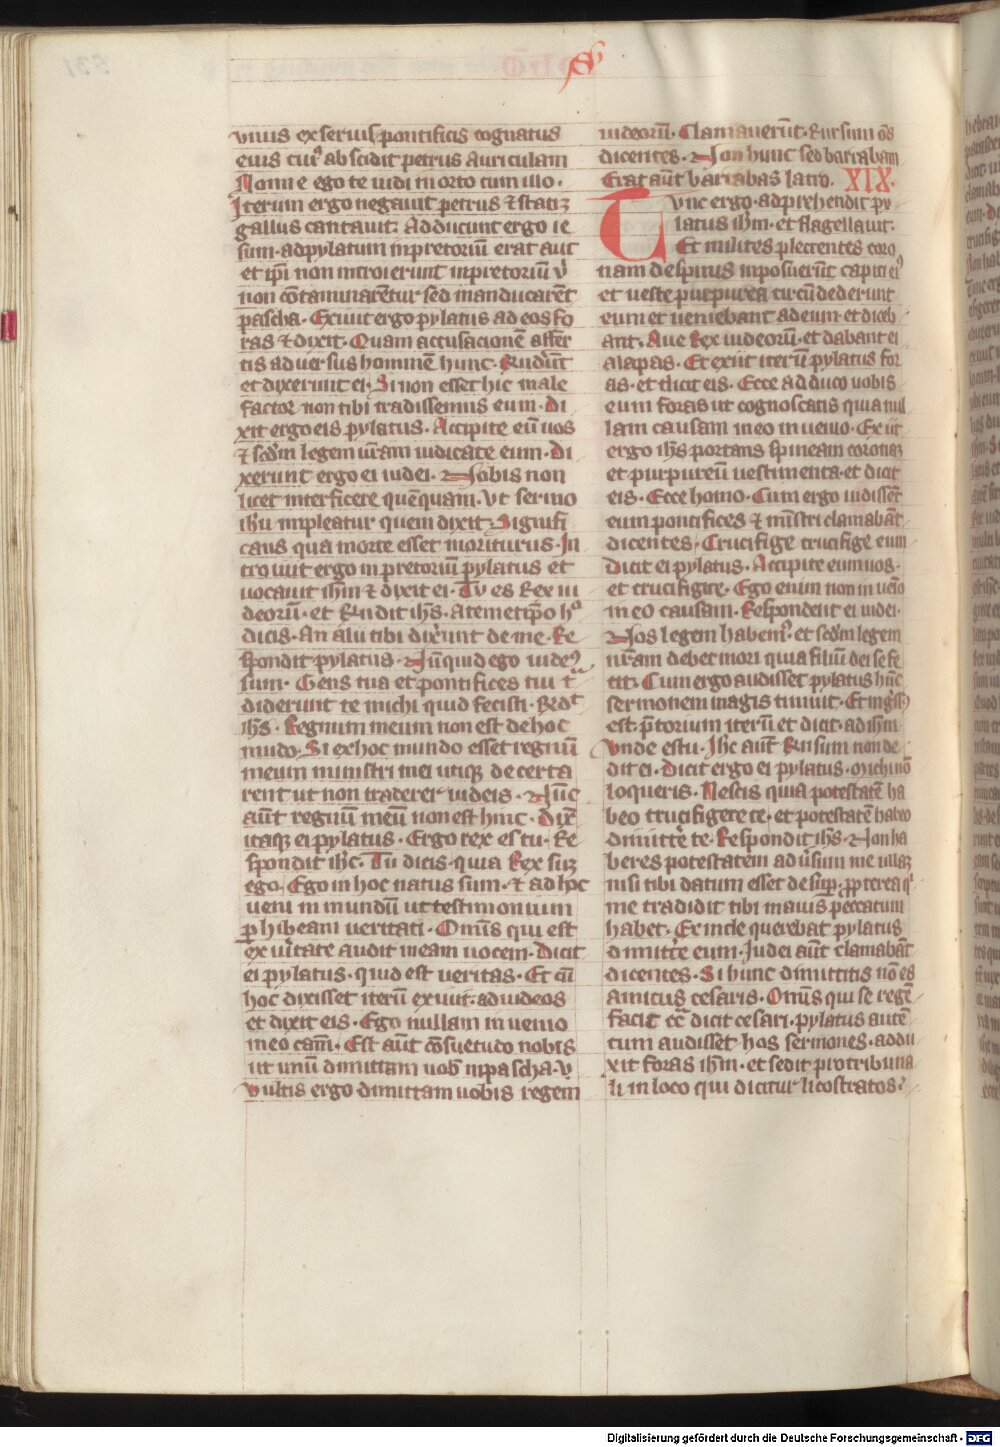 S
vnus ex seruis pontificis cognatus
eius cuiꝰ abscidit petrus auriculam
Nonne ego te uidi in orto cum illo·
Iterum ergo negauit petrus ⁊ statiꝫ
gallus cantauit· Adducunt ergo ie
sum· ad pylatum in pretoriū erat aut
et ip̄i non introierunt in pretoriū ṽ
non cōtaminarētur sed manducarēt
pascha· Exiuit ergo pylatus ad eos fo
ras ⁊ dixit· Quam accusacionē affer
tis aduersus hominē hunc· Rūderūt
et dixerunt ei· Si non esset hic male
factor non tibi tradissemus eum· Di
xit ergo eis pylatus· Accipite eū uos
⁊ scd̄m legem ur̄am iudicate eum· Di
xerunt ergo ei iudei· Nobis non
licet interficere quēquam· Vt sermo
ih̄u inpleatur quem dixit· Signifi
cans qua morte esset moriturus· In
troiuit ergo in pretoriū pylatus et
uocauit ih̄m ⁊ dixit ei· Tv es Rex iu
deorū· et Rūdit ih̄s· A temetip̄o hͦ
dicis· An alii tibi dixerunt de me· Re
spondit pylatus· Nūquid ego iudeꝰ
sum· Gens tua et pontifices tui tͣ
diderunt te michi quid fecisti· Rd̄t
ih̄s· Regnum meum non est de hoc
mūdo· Si ex hoc mundo esset regnū
meum ministri mei utiqꝫ decerta
rent ut non traderer iudeis· Nūc
aūt regnū meū non est hinc· Dix̄
itaqꝫ ei pylatus· Ergo rex es tu· Re
spondit ih̄c· Tu dicis· quia Rex suꝫ
ego· Ego in hoc natus sum· ⁊ ad hoc
ueni in mundū ut testimonium
ꝑhibeam ueritati· Omīs qui est
ex ūitate audit meam uocem· Dicit
ei pylatus· quid est ueritas· Et cū
hoc dixisset iterū exiuit· ad iudeos
et dixit eis· Ego nullam inuenio
in eo cām· Est aūt cōsuetudo nobis
ut unū dimittam uob̄ in pascha· V
vultis ergo dimittam uobis regem
iudeorū· Clamauerūt· Rursum oēs
dicentes· Non hunc sed barrabam
Erat aūt barrabas latro. XIX·
Tvnc ergo· adprehendit py
latus ih̄m· et flagellauit·
Et milites plectentes coro
nam de spinis inposuerūt capiti eiꝰ
et ueste purpurea circūdederunt
eum et ueniebant ad eum· et diceb
ant· Aue Rex iudeorū· et dabant ei
alapas· Et exiit iterū pylatus for
as· et dicit eis· Ecce adduco uobis
eum foras ut cognoscatis quia nul
lam causam in eo inuenio· Exiit
ergo ih̄s portans spineam coronaꝫ
et purpureū uestimenta· et dicit
eis· Ecce homo· Cum ergo uidissēt
eum pontifices ⁊ mīstri clamabāt
dicentes· Crucifige crucifige eum
Dicit ei pylatus· Accipite eum uos·
et crucifigite· Ego enim non inueīo
in eo causam· Responderunt ei iudei·
Nos legem habemꝰ· et scd̄m legem
nr̄am debet mori quia filiū dei se fe
cit· Cum ergo audisset pylatus hūc
sermonem magis timuit· Et īgr̄ssꝰ
est· p̄torium iterū et dicit· ad ih̄m·
Vnde es tu· Ih̄c aūt Rn̄sum non de
dit ei· Dicit ergo ei pylatus· Michi nō
loqueris· Nescis quia potestatē ha
beo crucifigere te· et potestatē habeo
dimittr̄e te· Respondit ih̄s· Non ha
beres potestatem aduersum me ullaꝫ
nisi tibi datum esset desup̄· p̄p̄terea qͥ
me tradidit tibi maius peccatum
habet· Ex inde querebat pylatus
dimittr̄e eum· Iudei aūt clamabāt
dicentes· Si hunc dimittitis nō es
amicus cesaris· Omīs qui se regē
facit cc̄ dicit cesari· pylatus autē
cum audisset hos sermones· addu
xit foras ih̄m· et sedit pro tribuna
li in loco qui dicitur licostratos·
Digitalisierung gefördert durch die Deutsche Forschungsgemeinschaft - DFG